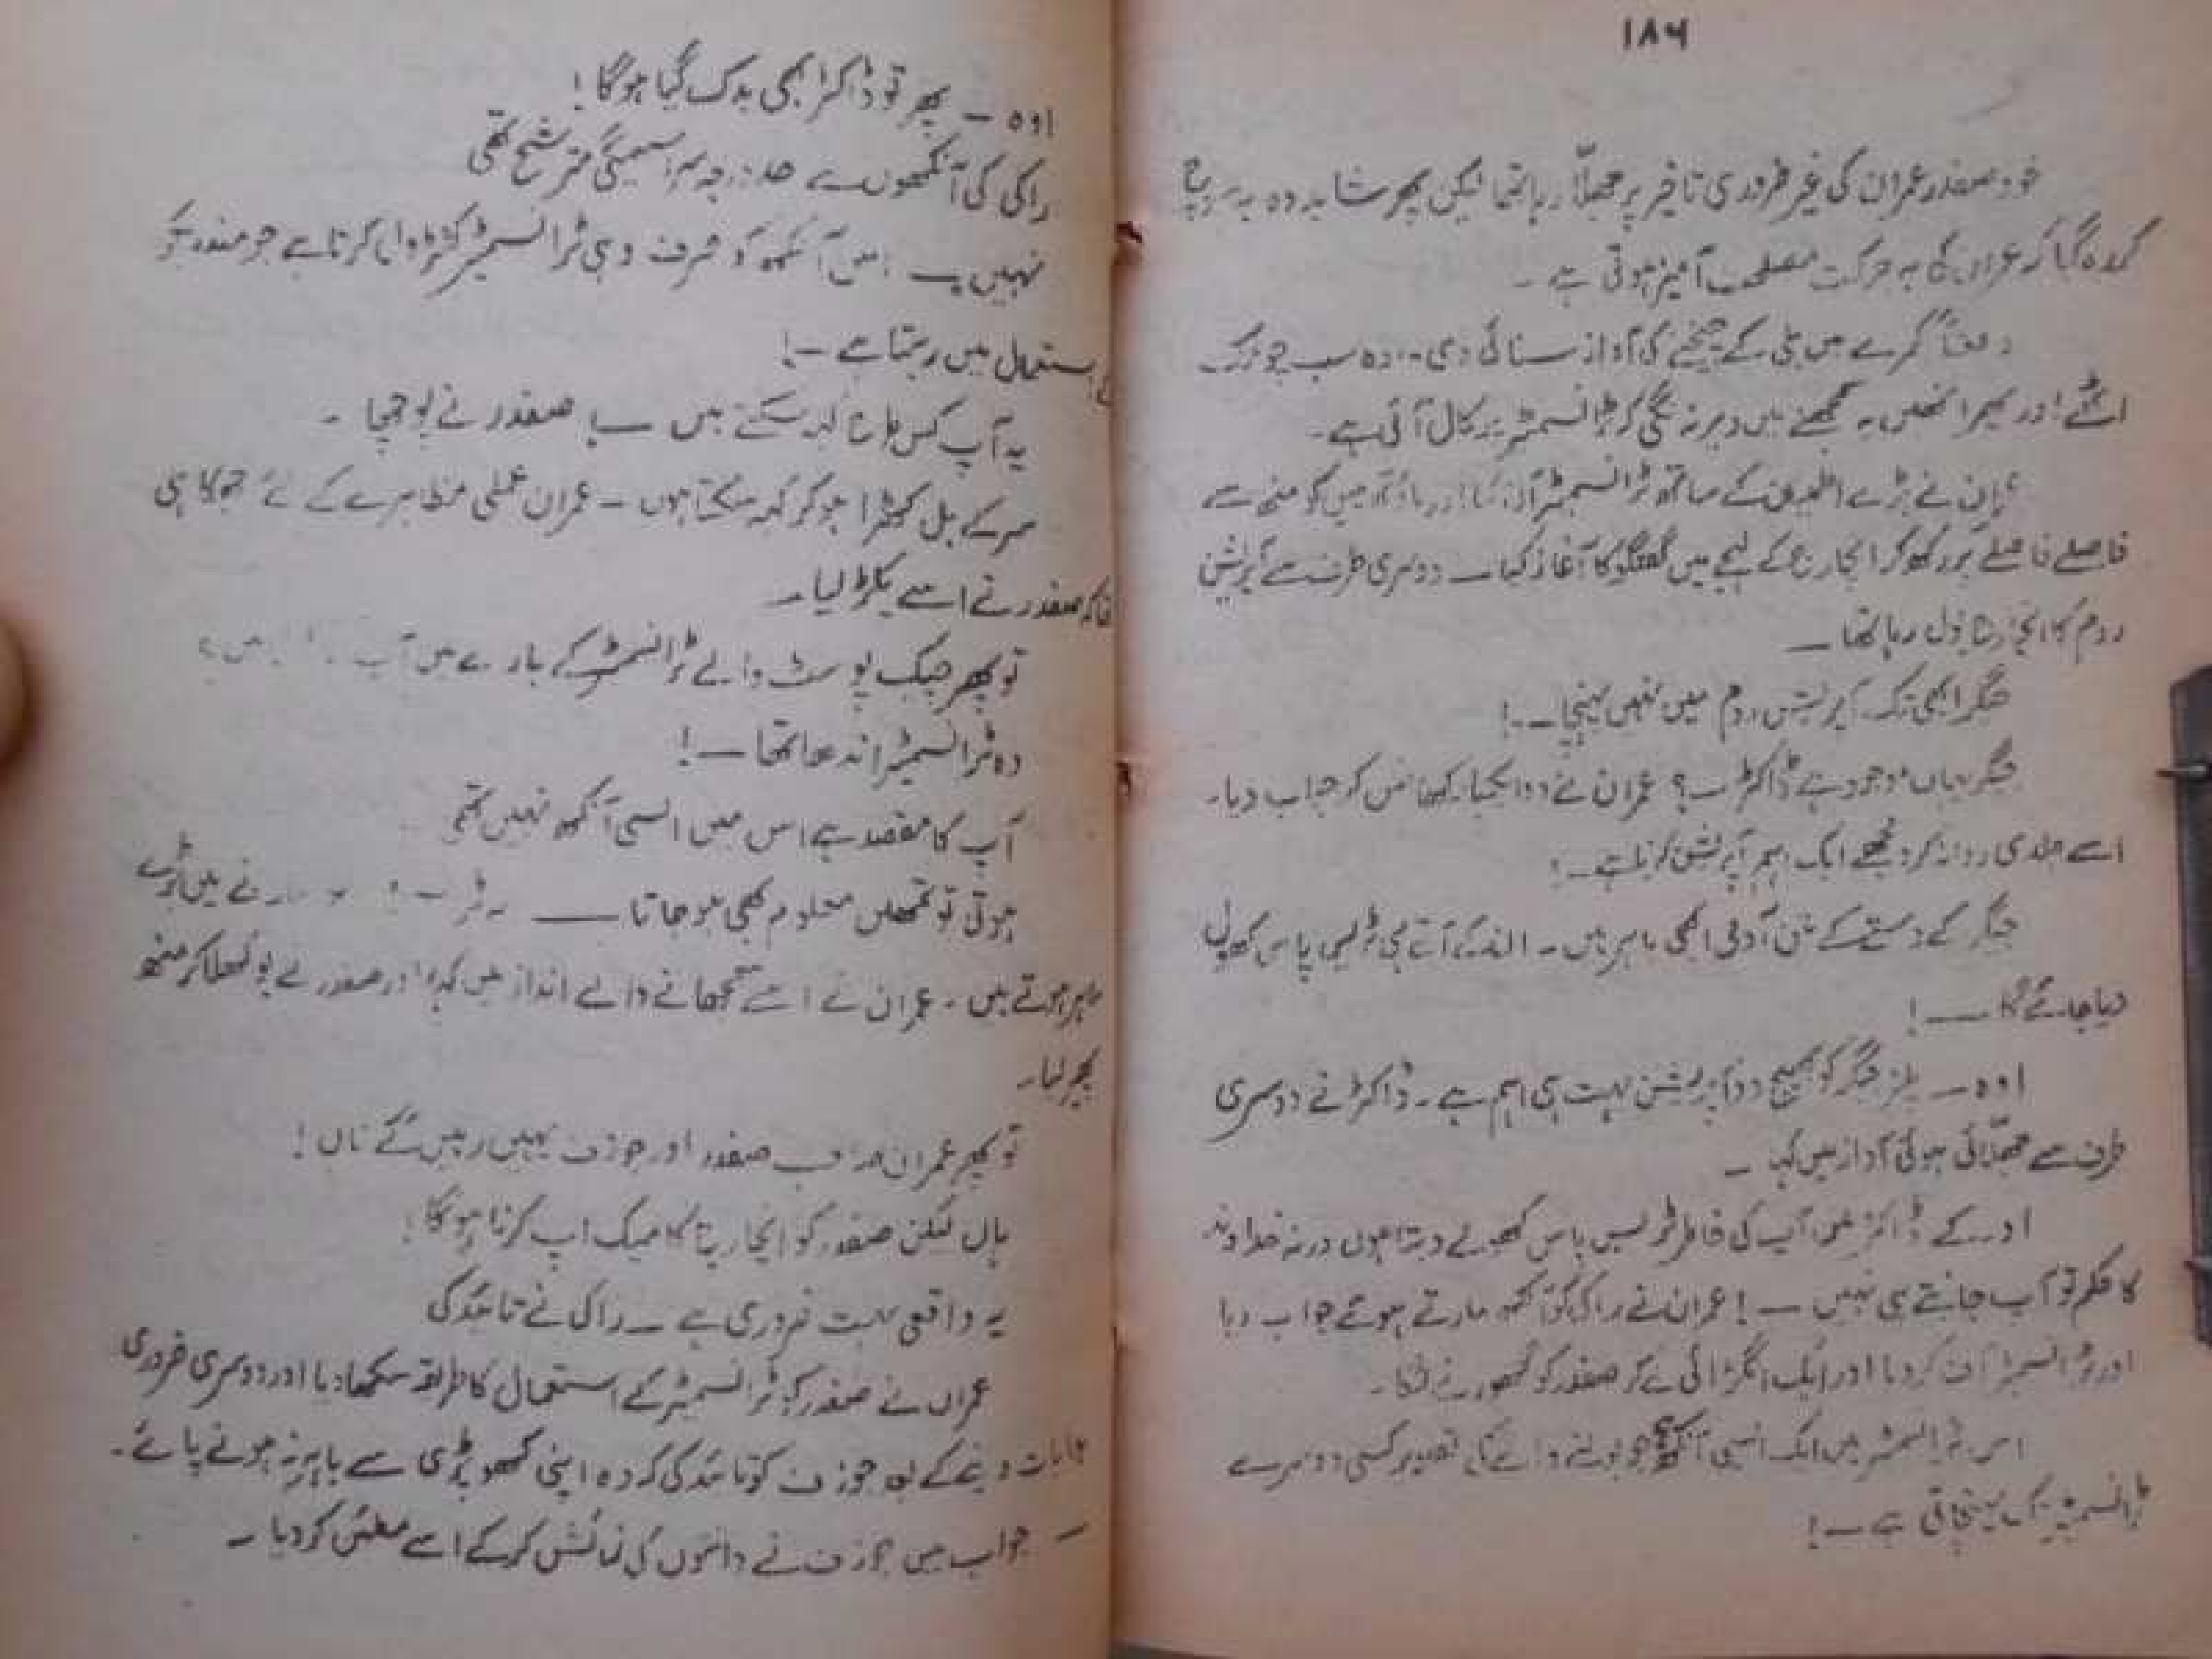 ۱۸۶
خود صفدر عمران کی غیر ضروری تاخیر پر جھلّا رہا تھا لیکن پھر شاید وہ یہ
کہ عمران کی ہر حرکت مصلحت آمیز ہوتی ہے۔
دفعتاً کمرے میں بلی کے چیخنے کی آواز سنائی دی۔ وہ سب چونک
اٹھے اور پھر انھیں یہ سمجھنے میں دیر نہ لگی کہ ٹرانسمیٹر پر کال آئی ہے۔
عمران نے بڑے اطمینان کے ساتھ ٹرانسمیٹر آن کیا اور ماؤتھ پیس کو منھ سے
فاصلے فاصلے پر رکھ کر انچارج کے لہجے میں گفتگو کا آغاز کیا۔ دوسری طرف سے آپریشن
روم کا انچارج بول رہا تھا ــ
جگر ابھی تک آپریشن روم میں نہیں پہنچا ــ !
جگر یہاں موجود ہے ڈاکٹر ــ ؟ عمران نے کر جواب دیا۔
اسے جلدی روانہ کرو مجھے ایک اہم آپریشن کرنا ہے ــ !
جگر کے دستے کے تین آدمی ابھی باہر ہیں ۔ ان کے آتے ہی پاس کھول
دیا جائے گا ـــ !
اوہ ــ پلیز جگر کو بھیج دو آپریشن بہت ہی اہم ہے ۔ ڈاکٹر نے دوسری
طرف سے جھلّائی ہوئی آواز میں کہا ــ
اوکے ڈاکٹر میں آپ کی خاطر پاس کھولے دیتا ہوں ورنہ خداوند
کا حکم تو آپ جانتے ہی نہیں ــ ! عمران نے راکی کو آنکھ مارتے ہوئے جواب دیا
اور ٹرانسمیٹر آف کر دیا اور ایک انگڑائی لے کر صفدر کو گھورنے لگا۔
اس ٹرانسمیٹر میں ایک ایسی آنکھ ہے جو بولنے والے کی تصویر کسی دوسرے
ٹرانسمیٹر تک پہنچاتی ہے ــ !
اوہ ــ پھر تو ڈاکٹر ابھی بدک گیا ہوگا !
راکی کی آنکھوں سے حد درجہ سراسیمگی مترشح تھی
نہیں ــ اس آنکھ کو صرف وہی ٹرانسمیٹر کنٹرول کرتا ہے جو
کے استعمال میں رہتا ہے ــ !
یہ آپ کس طرح کہہ سکتے ہیں ــ صفدر نے پوچھا ۔
سر کے بل کھڑا ہو کر کہہ سکتا ہوں ــ عمران عملی مظاہرے کے لئے جھکا ہی
تھا کہ صفدر نے اسے پکڑ لیا ــ
تو پھر چیک پوسٹ والے ٹرانسمیٹر کے بارے میں آپ
وہ ٹرانسمیٹر اندھا تھا ــ !
آپ کا مقصد ہے اس میں ایسی آنکھ نہیں تھی
ہوتی تو تمھیں معلوم بھی ہو جاتا ـــ نے میں بڑے
ماہر ہوتے ہیں ۔ عمران نے اسے سمجھانے والے انداز میں کہا اور صفدر نے بوکھلا کر منھ
پھیر لیا۔
تو پھر عمران صاحب صفدر اور جوزف یہیں رہیں گے ناں !
ہاں لیکن صفدر کو انچارج کا میک اپ کرنا ہوگا !
یہ واقعی بہت ضروری ہے ــ راکی نے تائید کی
عمران نے صفدر کو ٹرانسمیٹر کے استعمال کا طریقہ سکھا دیا اور دوسری ضروری
ہدایات دینے کے بعد جوزف کو تائید کی کہ وہ اپنی کھوپڑی سے باہر نہ ہونے پائے ۔
ــ جواب میں جوزف نے دانتوں کی نمائش کر کے اسے مطمئن کر دیا ــ